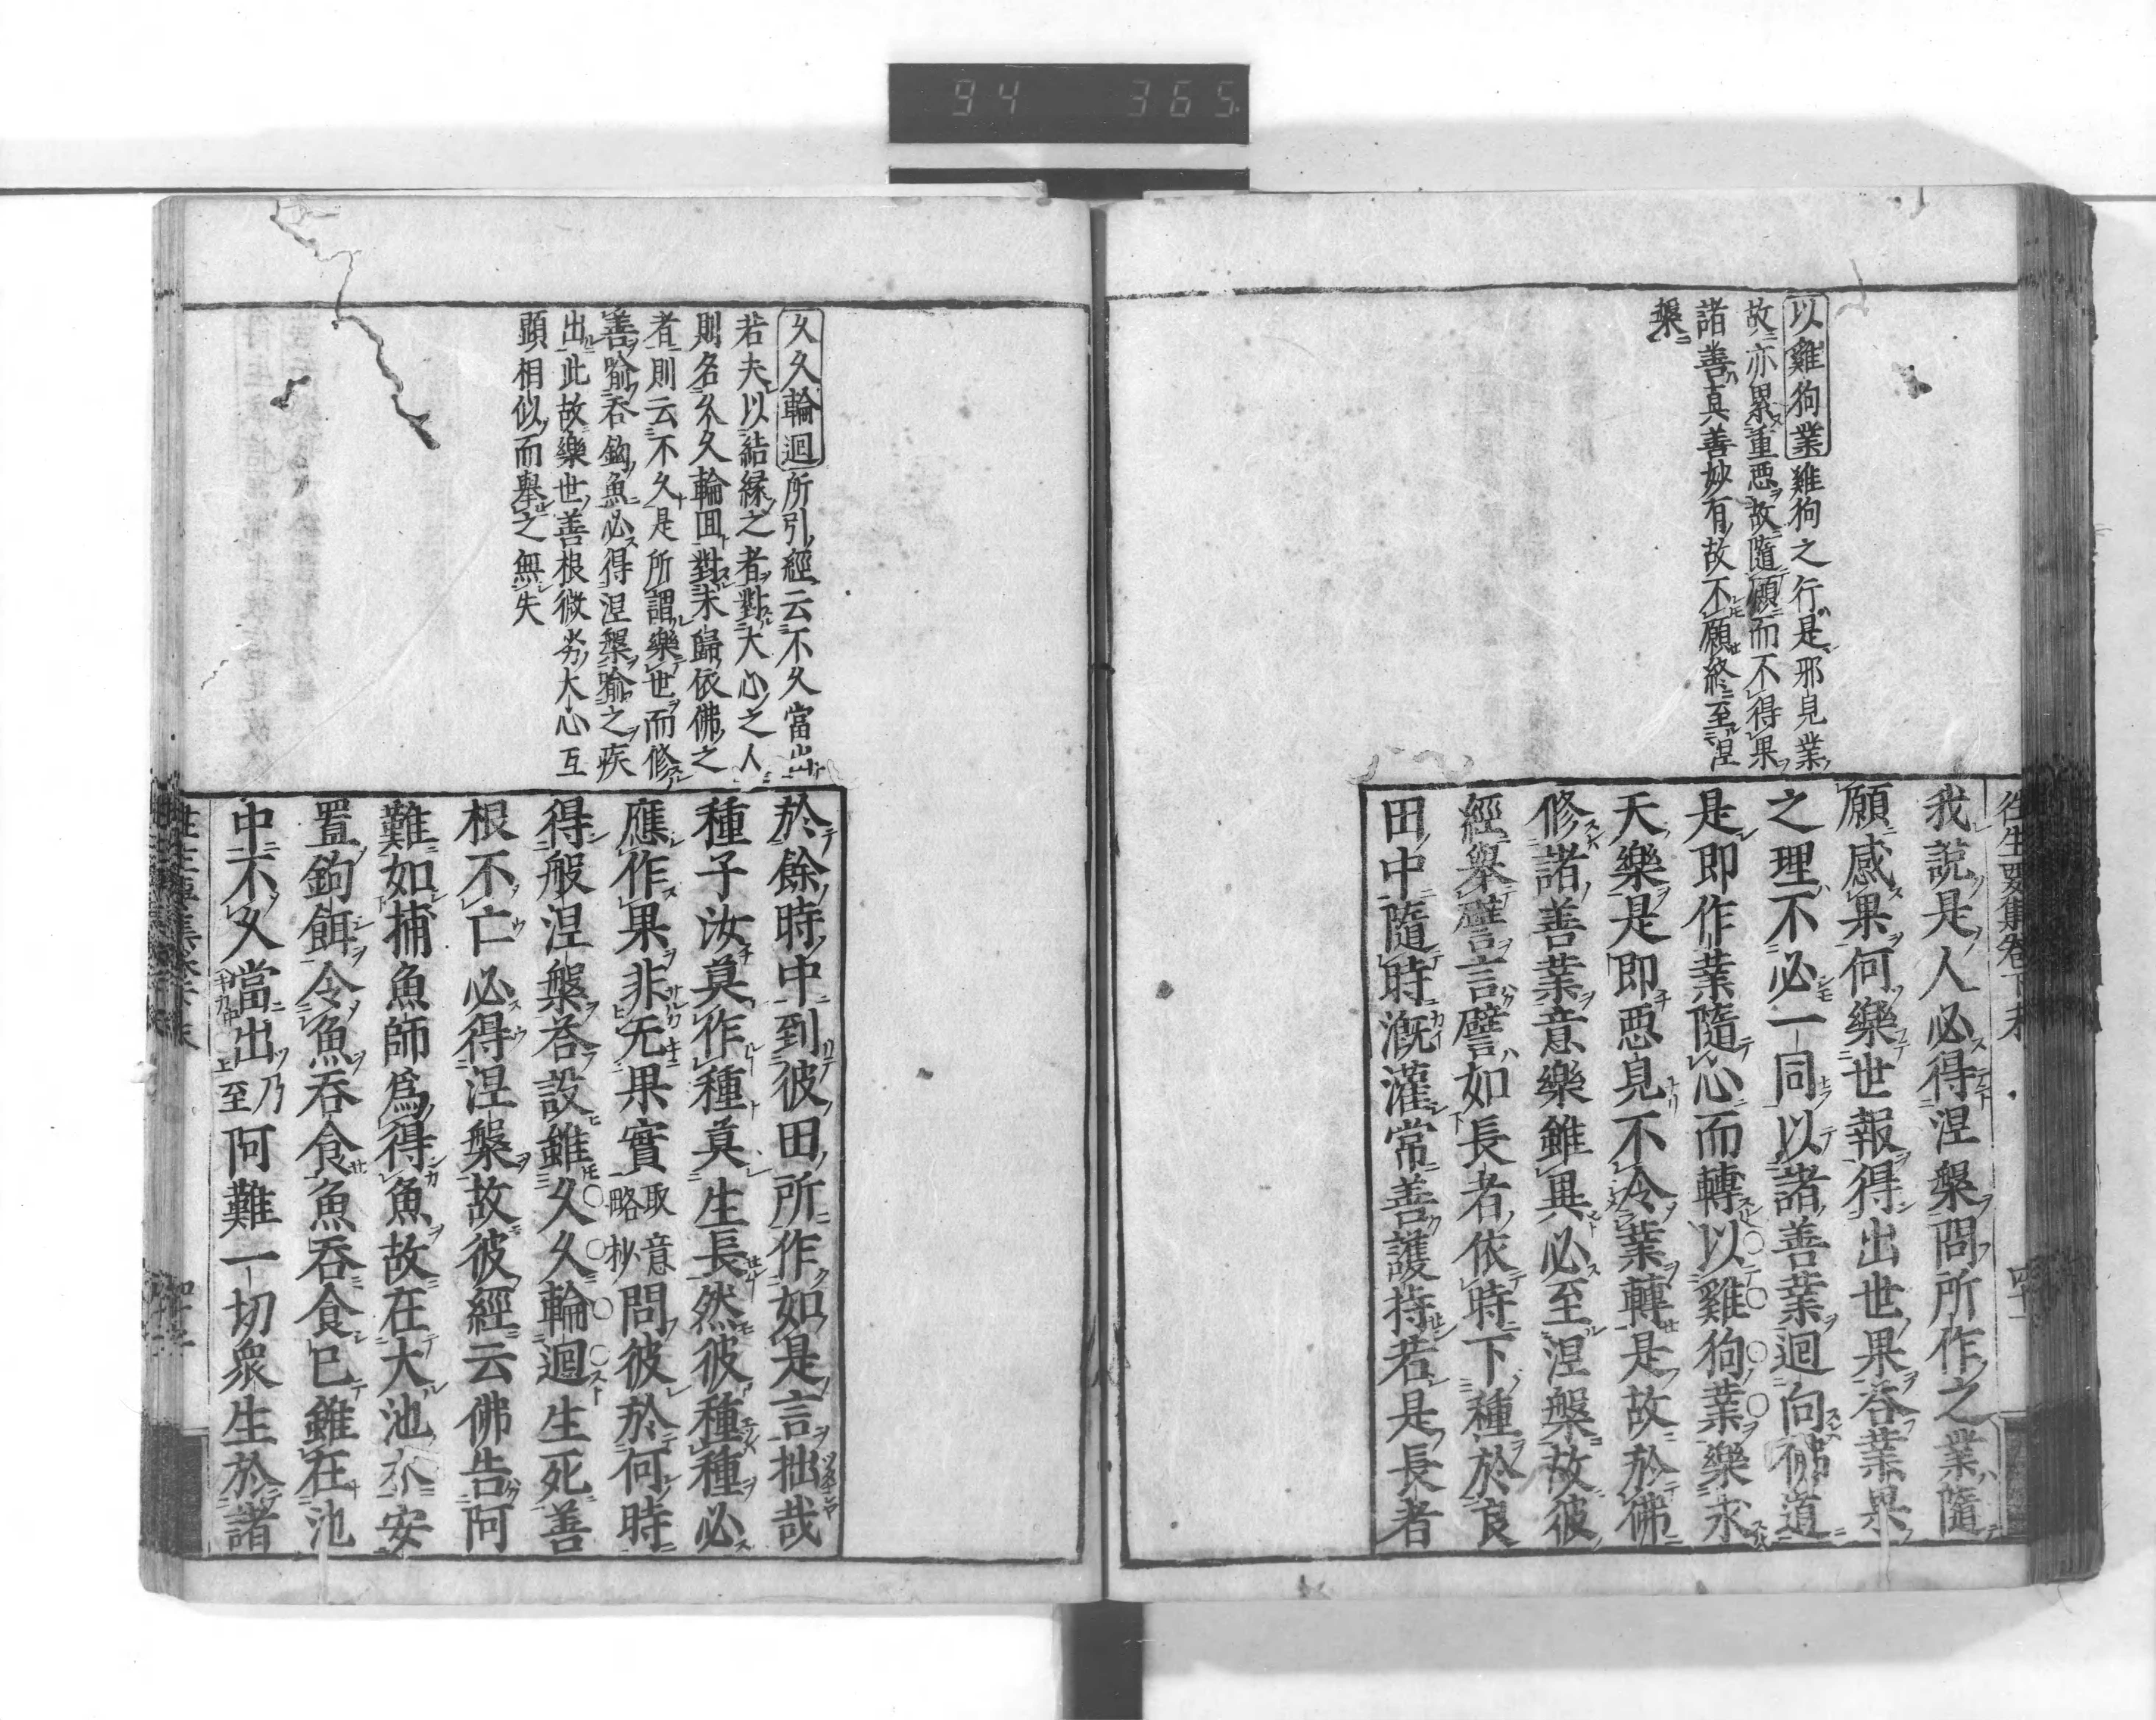 94 365
往生要集卷下末
以雞狗業雞狗之行是邪見業
故亦累重悪故隨願而不得果
諸善真善妙有故不願終至涅
槃
我説是人必得涅槃問所作之業隨
願感果何樂世報得出世果荅業果
之理不必一同以諸善業迴向佛道
是即作業隨心而轉以雞狗業樂求
天樂是即悪見不令業轉是故於佛
修諸善業意樂雖異必至涅槃故彼
經舉譬言譬如長者依時下種於良
田中隨時溉灌常善護持若是長者
久久輪迴所引經云不久當出
若夫以結縁之者對大心之人
則名久久輪回對未歸依佛之
者則云不久是所謂樂世而修
善喩吞鈎魚必得涅槃喩之疾
出此故樂世善根微劣大心互
顕相似而舉之無失
於餘時中到彼田所作如是言拙哉
種子汝莫作種莫生長然彼種種必
應作果非无果實取意略抄問彼於何時
得般涅槃荅設雖久久輪迴生死善
根不亡必得涅槃故彼經云佛告阿
難如捕魚師爲得魚故在大池水安
置鉤餌令魚吞食魚吞食已雖在池
中不久當出乃至阿難一切衆生於諸